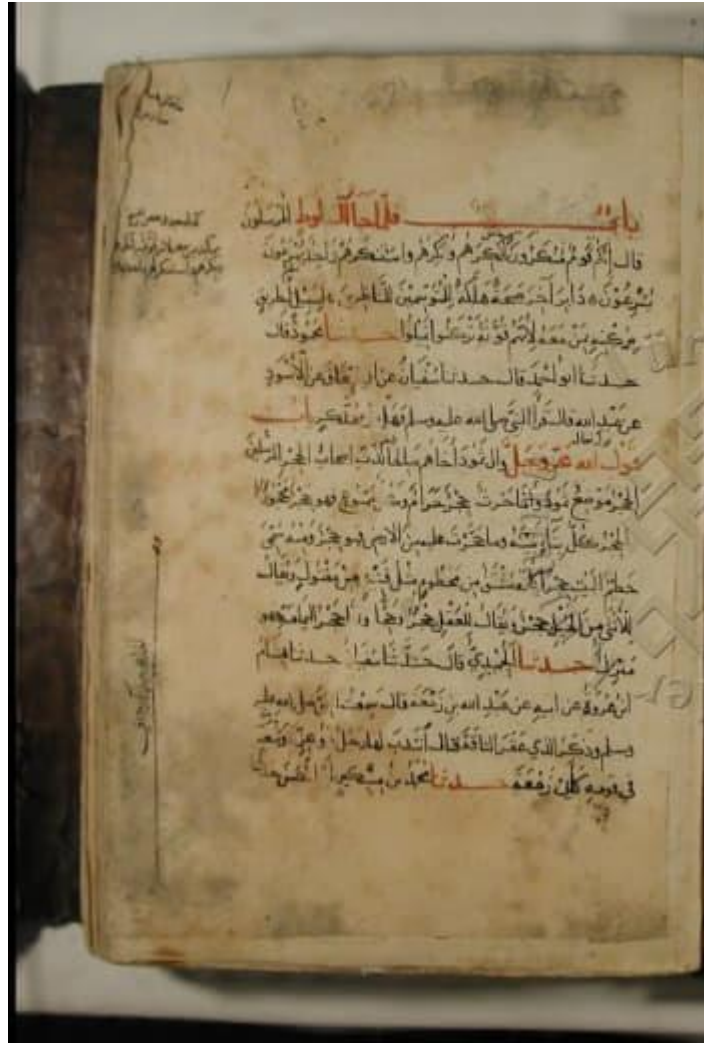 باب فلما جاء آل لوط المرسلون
قال إنكم قوم منكرون أنكرهم ونكرهم واستنكرهم واحد يهرعون
يسرعون دابر آخر صيحة هلكة للمتوسمين للناظرين لبسبيل لطريق
بركنه بمن معه لأنهم قوته تركنوا تميلوا حدثنا محمود قال
حدثنا أبو أحمد قال حدثنا سفيان عن أبي إسحاق عن الأسود
عن عبد الله قال قرأ النبي صلى الله عليه وسلم فهل من مدكر باب
قول الله عز وجل وإلى ثمود أخاهم صالحا كذب أصحاب الحجر المرسلين
الحجر موضع ثمود وأما حرث حجر حرام وكل ممنوع فهو حجر محجور
الحجر كل بناء بنيته وما حجرت عليه من الأرض فهو حجر ومنه سمي
حطيم البيت حجرا كأنه مشتق من محطوم مثل قتيل من مقتول ويقال
للأنثى من الخيل حجر ويقال للعقل حجر وحجا وأما حجر اليمامة فهو
منزل حدثنا الحميدي قال حدثنا سفيان حدثنا هشام
ابن عروة عن أبيه عن عبد الله بن زمعة قال سمعت النبي صلى الله عليه
وسلم وذكر الذي عقر الناقة فقال انتدب لها رجل ذو عز ومنعة
في قومه كأبي زمعة حدثنا محمد بن مسكين أبو الحسن حدثنا